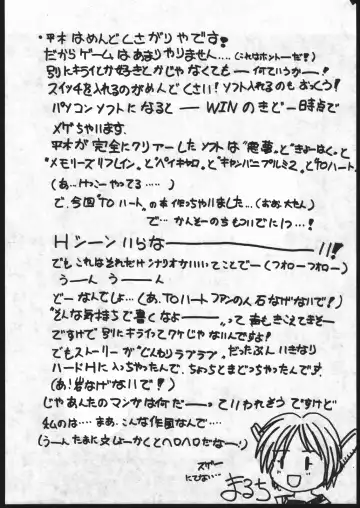 ・平木はめんどくさがりやです!
だからゲームはあまりやりません....(これはホントーだ!)
別にキライとかぜろきとかじゃなくてもー何ていうかー!
スイッチを入れるのがめんどくさい!ソフト入れるのもおっくう!
パソコンソフトになるとーWINのきどー時点で
メゲちゃいます.
平木が完全にクリアーしたソフトは"と"きょーはく"と
"メモリーズリフレイン"と"パイキャロ"と"キャンバニプルミ2"とTOハート.
(あ…けっこーやってる……)
で、今回"TOハート"の本作っちゃいました…(おめ大たん)
で…かんそーのちもついでに1つ…!
Hシーンいらなーーー!!!
でもこれはそれだけシナリオがいいってことでー(フォローフォロー)
うーん うーん
どーなんでしょ…(あ、TOハートファンの人石なげないで!)
"そんな気持ちで書くなよーー"って声もきこえてきそー
ですけで別にキライってワケじゃないんですよ!
でもストーリーが"じんわりラブラブ"だったぶんいきなり
ハードHに入っちゃったんで、ちょっととまどっちゃたんです
(あ!岩なげないで!)
じゃあんたのマンガは何だーっていわれそうですけど
私のは……まあ…こんな作風なんで……
(うーんたまに文しょーかくとヘロヘロだなー!)
スゲー
にてない…
まるち